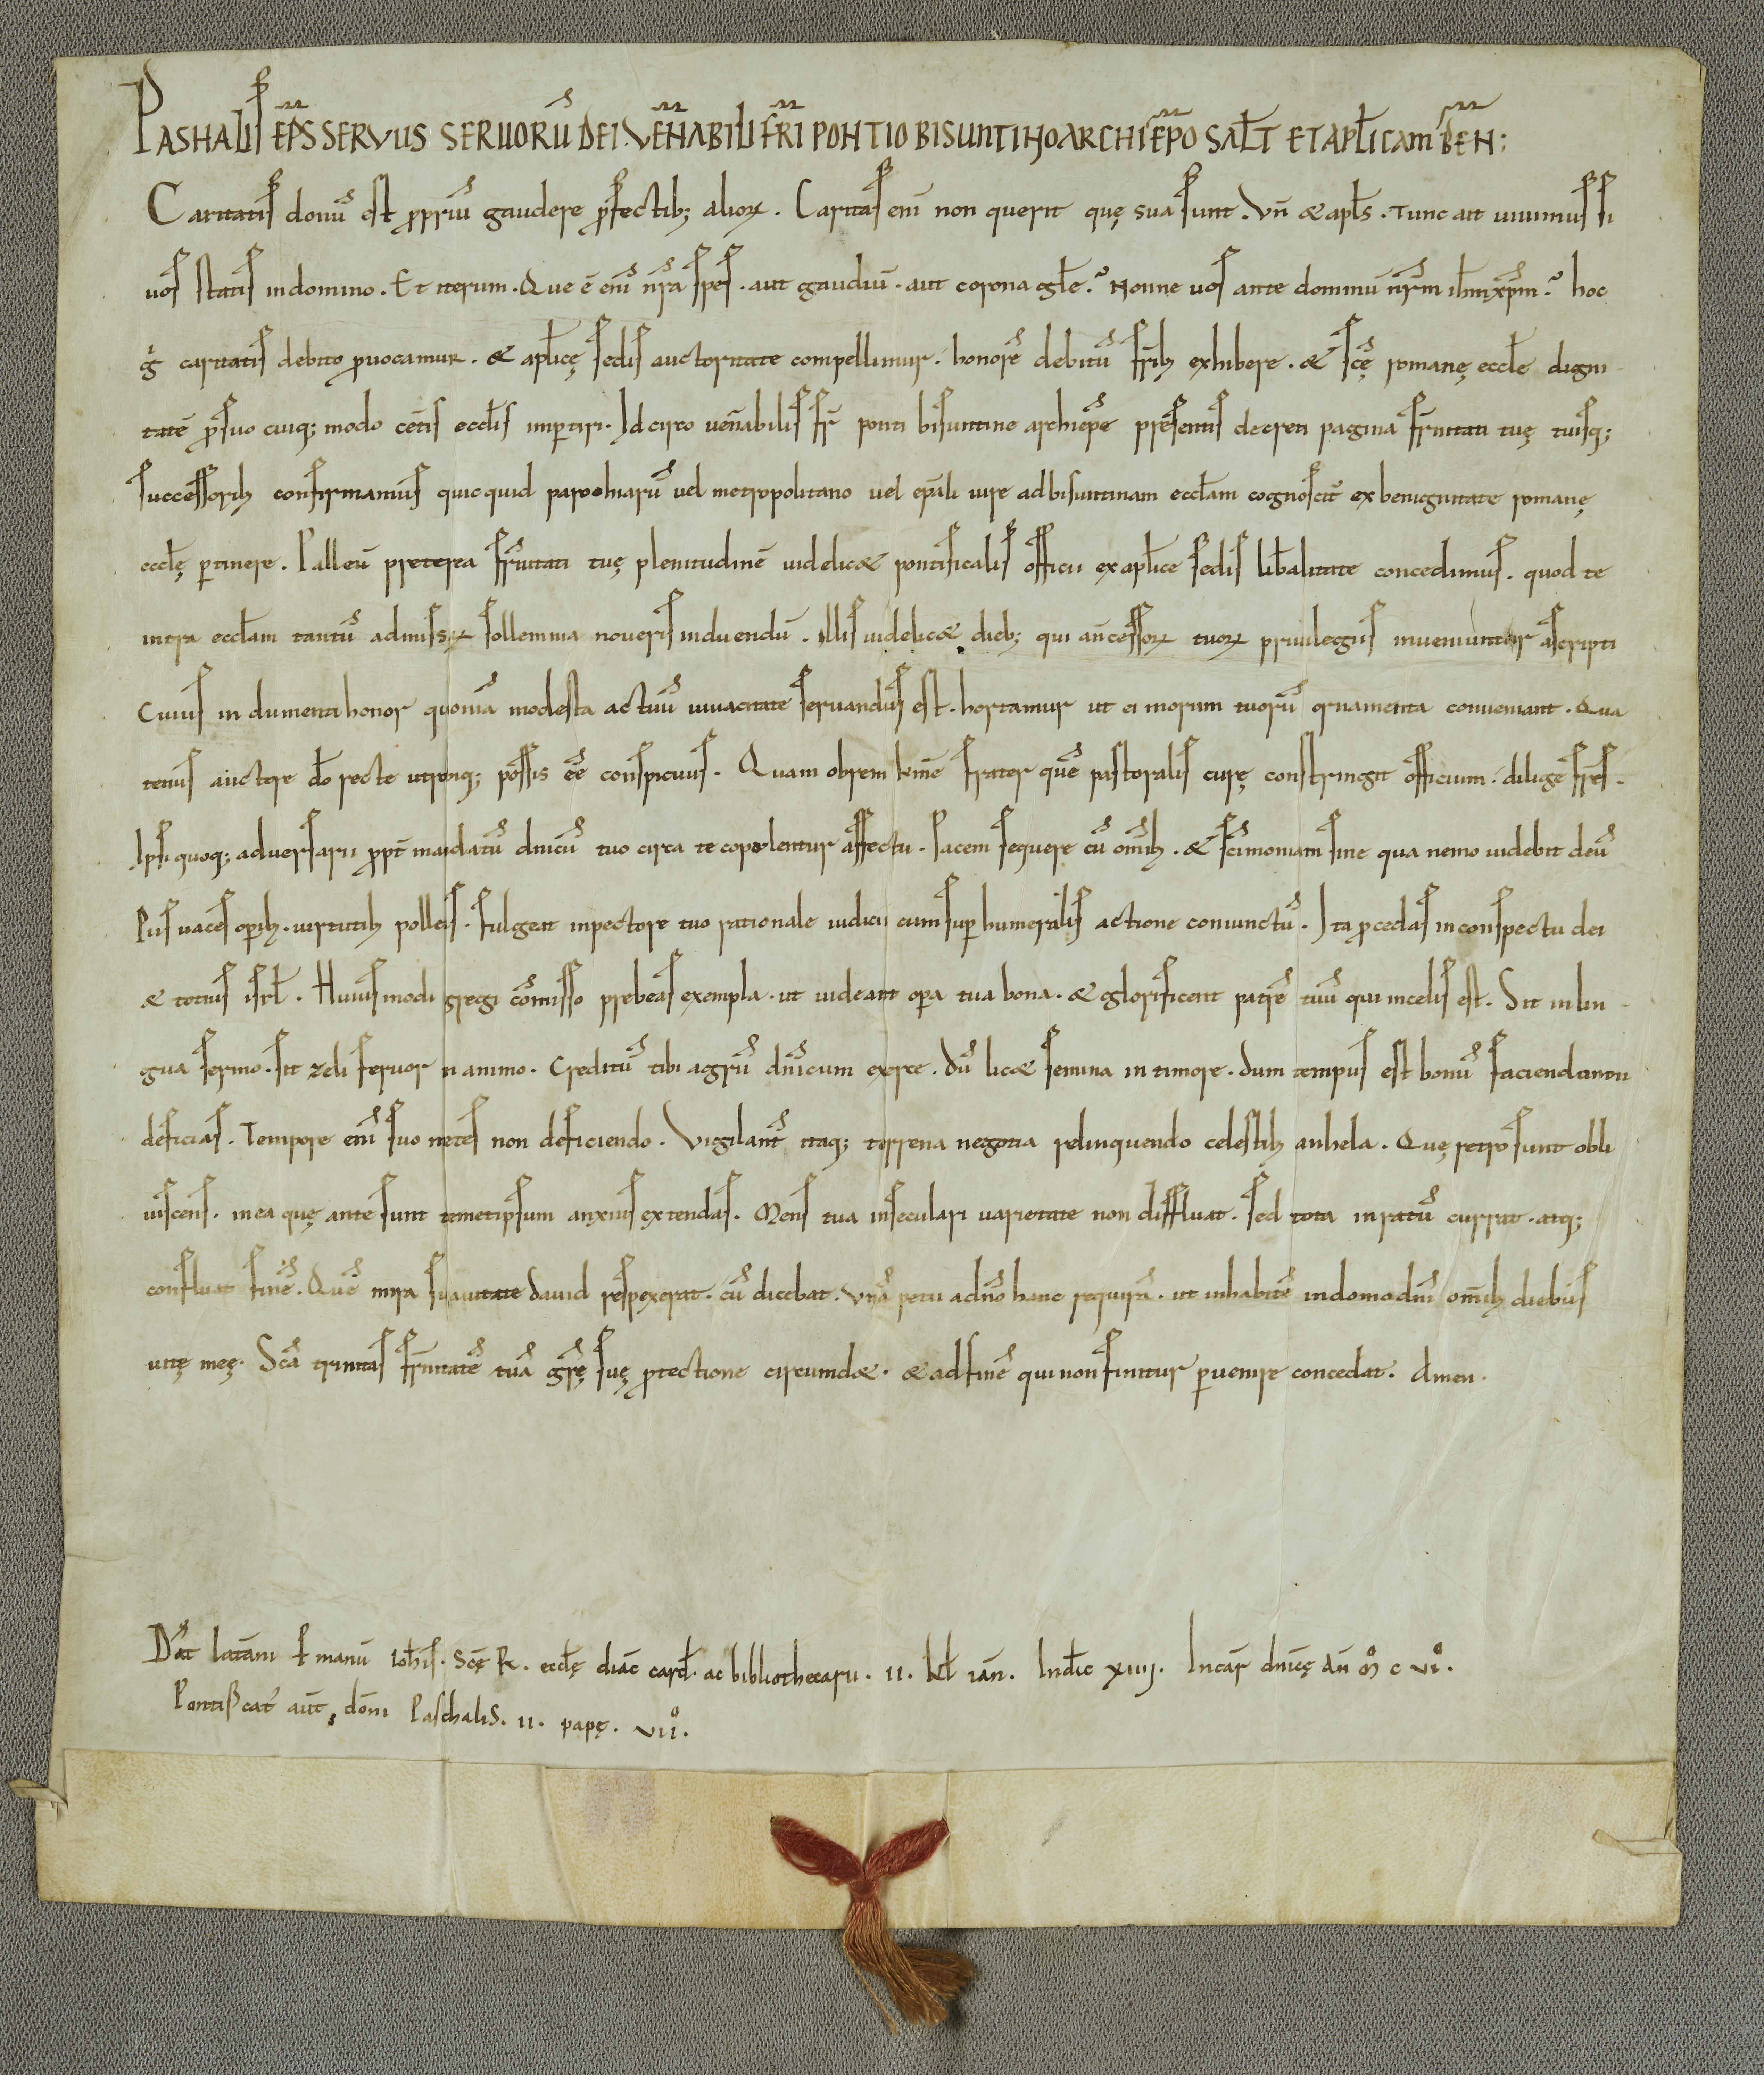 PASHALIS EP̅S SERVUS SERUORU̅ DEI. VEN̅ABILI FR̅I PONTIO BISUNTINO ARCHIEP̅O SAL̅T ET APL̅ICAM BEN̅:
Caritatis donu̅ est ꝓpriu̅ gaudere ꝓfectib; alioꝝ. Caritas eni̅ non querit quę sua sunt. Vn̅ & apl̅s. Tunc ait uiuimus si
uos statis in domino. Et iterum. Que e̅ eni̅ nr̅a spes. aut gaudiu̅. aut corona gl̅e? Nonne uos ante dominu̅ nr̅m ih̅m xp̅m? hoc
g̊ caritatis debito ꝓuocamur. & apl̅icę sedis auctoritate compellimur. honore̅ debitu̅ fr̅ib; exhibere. & sc̅ę romanę eccl̅e digni
tate̅ ꝓ suo cuiq; modo cet̅is eccl̅is imꝑtiri. Idcirco uen̅abilis fr̅ ponti bisuntine archiep̅e pręsentis decreti pagina fr̅nitati tuę tuisq;
successorib; confirmamus quicquid parochiaru̅ uel metropolitano uel ep̅ali iure ad bisuntinam eccl̅am cognoscit̅ ex benignitate romanę
eccl̅ę ꝑtinere. Palleu̅ preterea fr̅nitati tuę plenitudine̅ uidelic& pontificalis officii ex apl̅ice sedis lib̅alitate concedimus. quod te
intra eccl̅am tantu̅ ad missaꝝ sollemnia noueris induendu̅. illis uidelic& dieb; qui an̅cessoꝝ tuoꝝ priuilegiis inueniuntur ascripti
Cuius indumenti honor quonia̅ modesta actuu̅ uiuacitate seruandus est. hortamur ut ei morum tuoru̅ ornamenta conueniant. Qua
tenus auctore do̅ recte utronq; possis ee̅ conspicuus. Quam obrem kme̅ frater que̅ pastoralis curę constringit officium. dilige fr̅es.
Ipsi quoq; aduersarii ꝓpt̅ mandatu̅ dnicu̅ tuo circa te copolentur affectu. Pacem sequere cu̅ om̅ib; & sc̅imoniam sine qua nemo uidebit deu̅
Pius uaces oꝑib; uirtutib; polleas. fulgeat in pectore tuo rationale iudicii cum suꝑhumeralis actione coniunctu̅. Ita ꝓcedas in conspectu dei
& totius isrl̅. Huiusmodi gregi co̅misso prebeas exempla. ut uideant oꝑa tua bona. & glorificent patre̅ tuu̅ qui in celis est. Sit in lin
gua sermo. sit zeli feruor in animo. Creditu̅ tibi agru̅ dn̅icum exerce. du̅ lic& semina in timore. dum tempus est bonu̅ faciendi non
deficias. Tempore eni̅ suo metes non deficiendo. Vigilant̅ itaq; terrena negotia relinquendo celestib; anhela. Quę retro sunt obli
uiscens. in ea quę ante sunt temetipsum anxius extendas. Mens tua in seculari uarietate non diffluat. sed tota in ratu̅ currat. atq;
confluat fine̅. Que̅ mira suauitate dauid respexerat. cu̅ dicebat. Vna̅ petii a dn̅o hanc requira̅. ut inhabite̅ in domo dn̅i om̅ib; diebus
uitę meę. Sc̅a trinitas fr̅nitate̅ tua̅ gr̅ę suę ꝓtectione circumd&. & ad fine̅ qui non finitur ꝑuenire concedat. Amen.
Dat̅ lat̅ani ꝑ manu̅ Ioh̅is. Sc̅ę R. eccl̅ę diac̅ card̅. ac bibliothecarii. II. kl̅ ian̅. Indic̅ XIIII. Incar̅ dn̅icę an̅ M̊ C VI̊.
Pontificat̅ aut̅ do̅ni Paschalis. II. papę. VII̊.